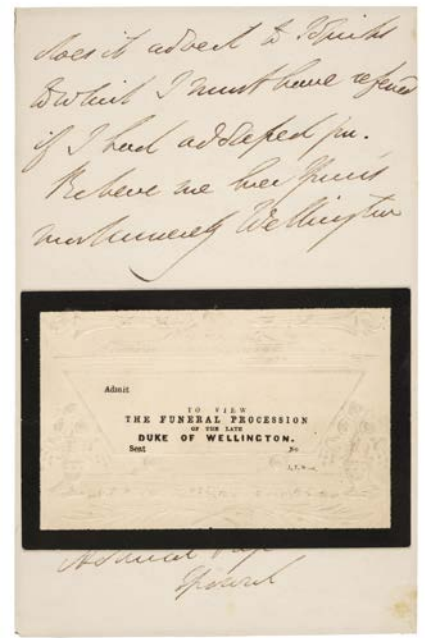 does it advert to
to which I must have referred
if I had addressed you.
Believe me Ever Yours
most sincerely Wellington
Admit
TO VIEW
THE FUNERAL PROCESSION
OF THE LATE
DUKE OF WELLINGTON.
Seat No
Admiral